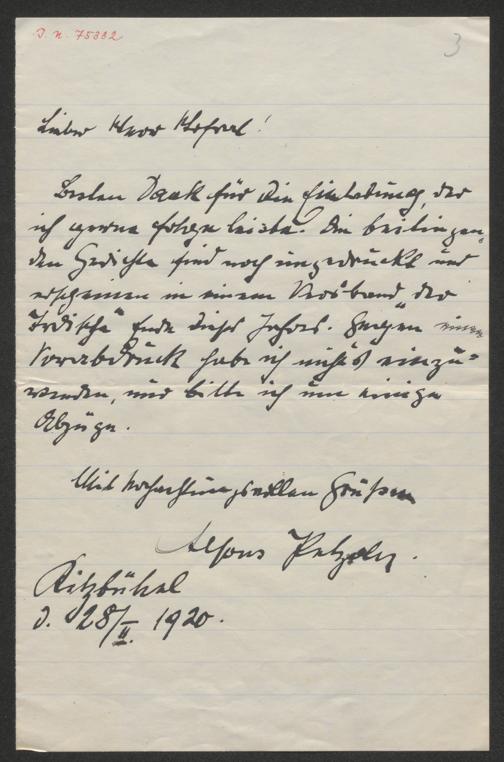 J. N. 75332
3
Lieber Herr Hofrat!
Besten Dank für die Einladung, der
ich gerne folge leiste. Die beiliegen-
den Gedichte sind noch ungedruckt und
erscheinen in einem Versband „der
Irdische" Ende dieses Jahres. Gegen einen
Vorabdruck habe ich nichts einzu=
wenden, und bitte ich um einige
Abzüge.
Mit hochachtungsvollen Grüßen
Alfons Petzold.
Kitzbühel
d. 28/II. 1920.